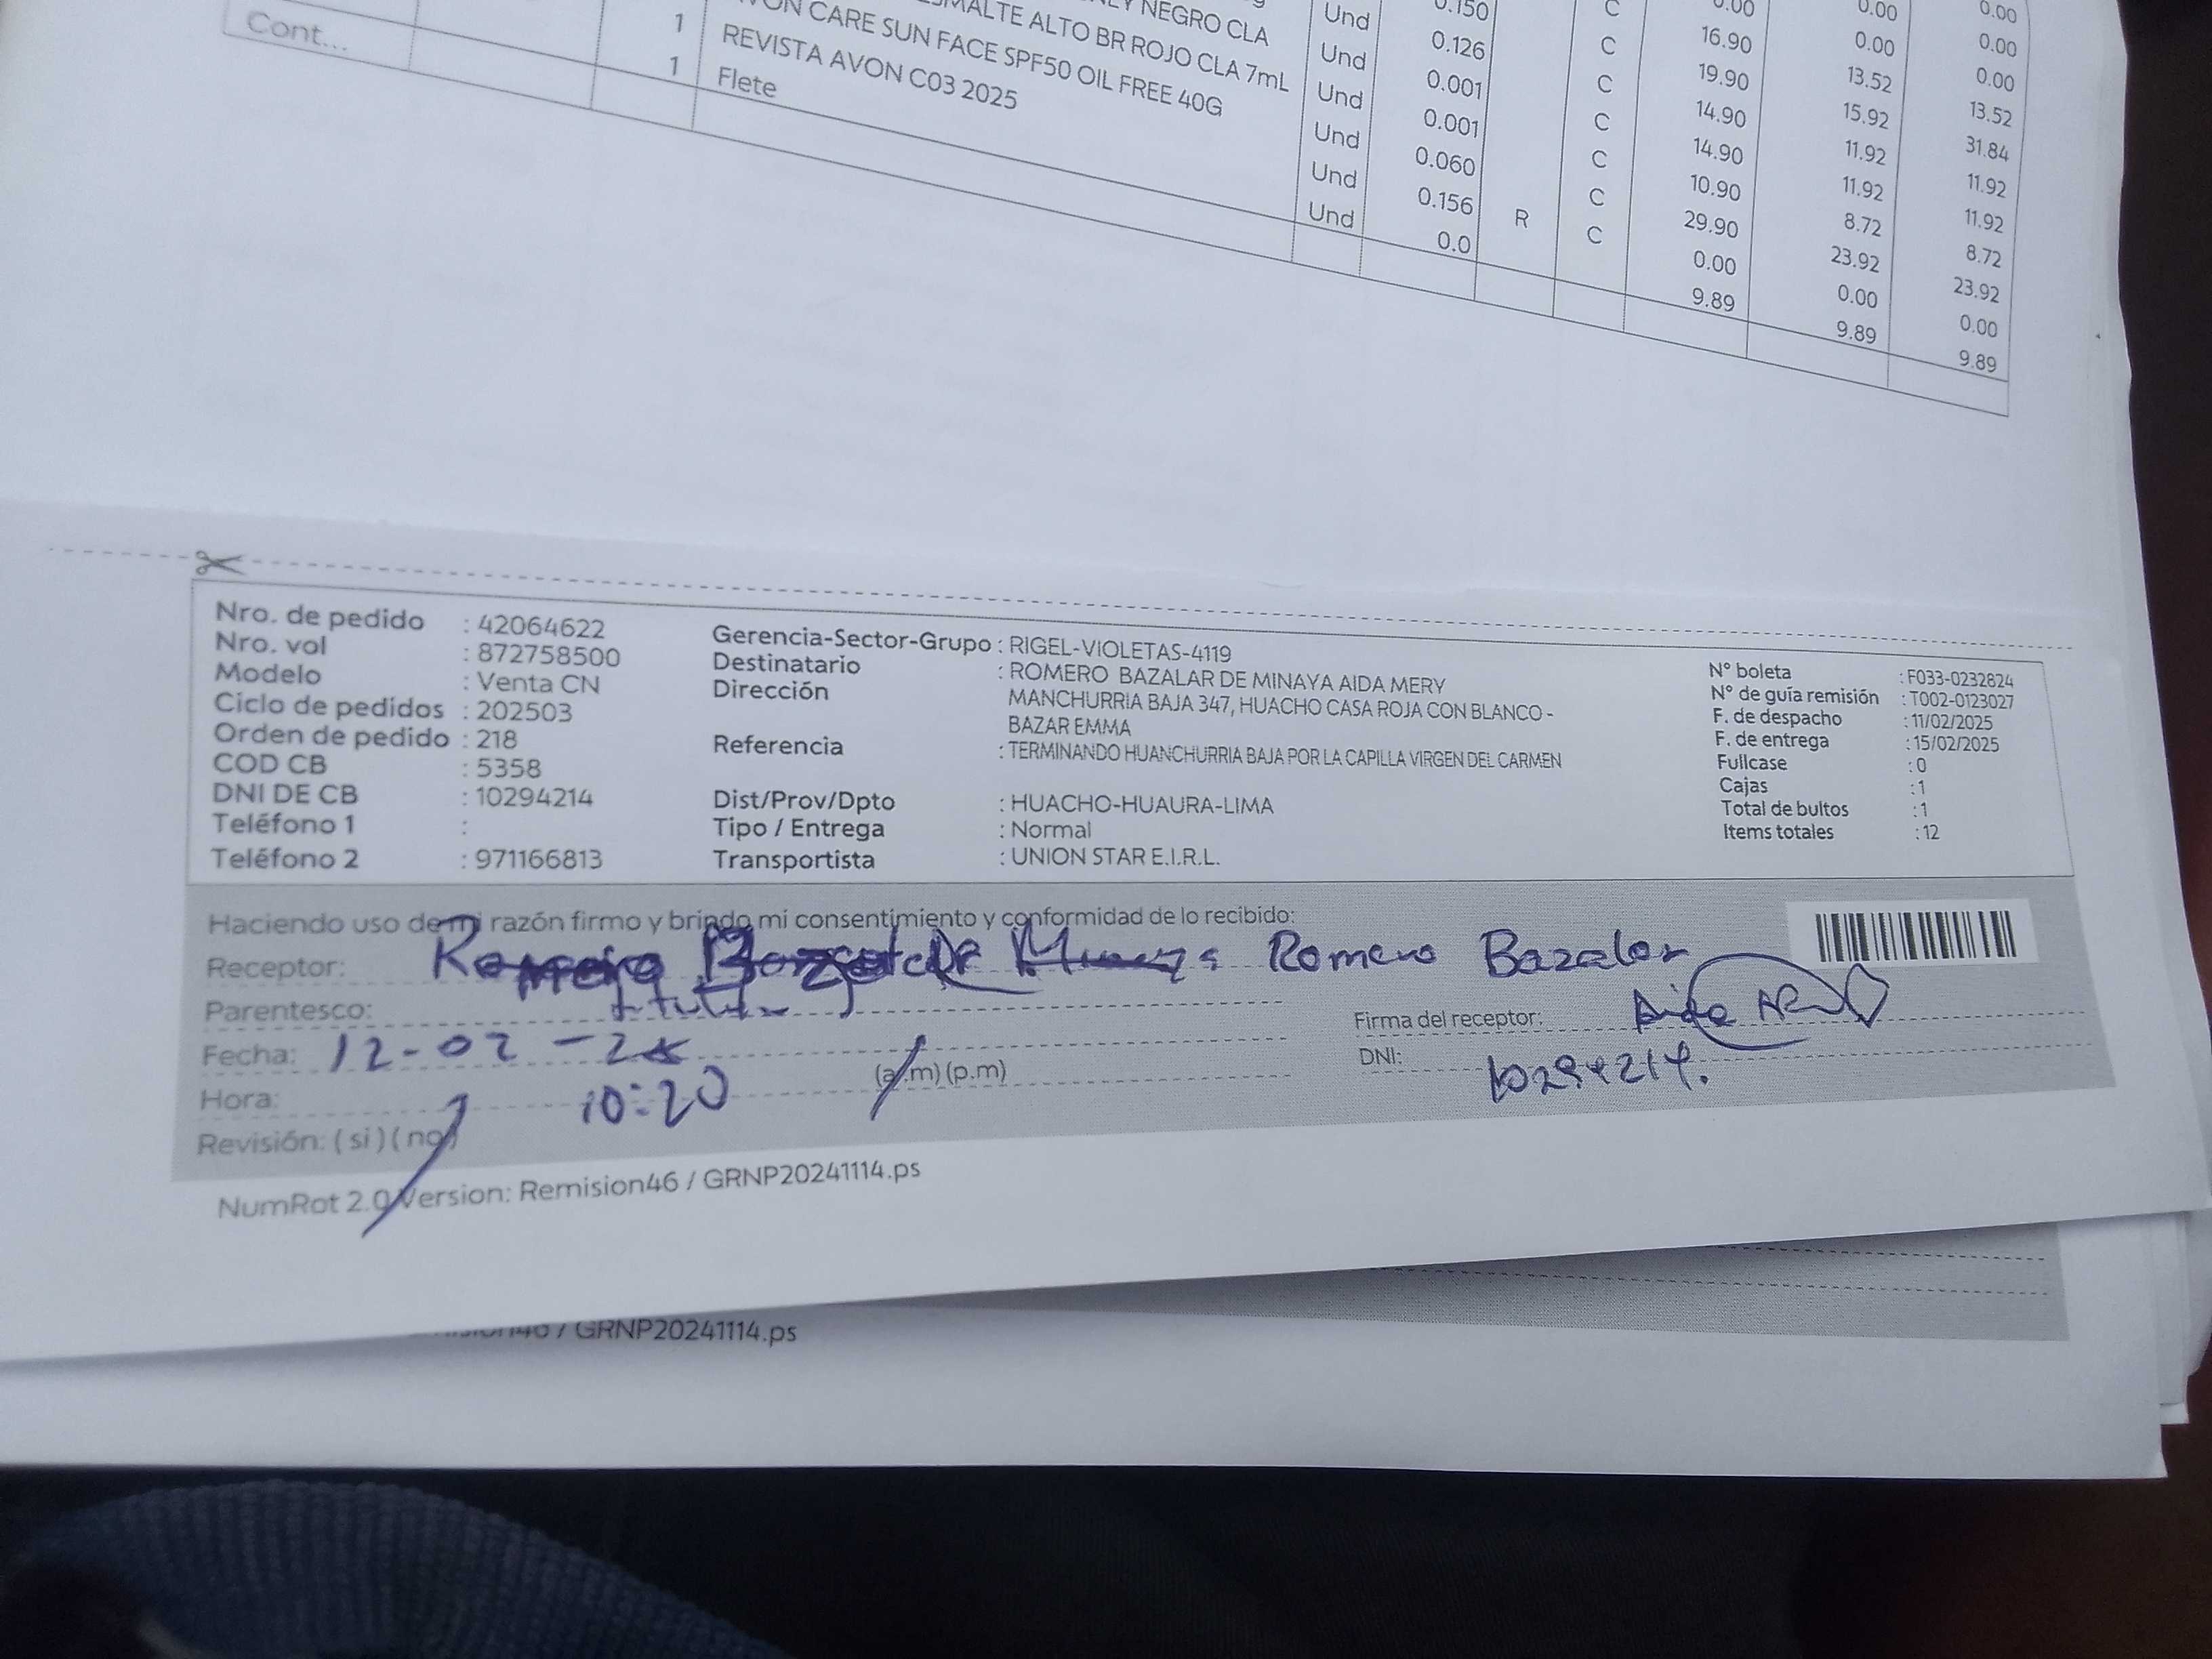 Y NEGRO CLA Und 0.150 C 0.00 0.00 0.00
ESMALTE ALTO BR ROJO CLA 7mL Und 0.126 C 16.90 0.00 0.00
1 AVON CARE SUN FACE SPF50 OIL FREE 40G Und 0.001 C 19.90 13.52 0.00
1 REVISTA AVON C03 2025 Und 0.001 C 14.90 15.92 13.52
Cont... Flete Und 0.060 C 14.90 11.92 31.84
Und 0.156 C 10.90 11.92 11.92
Und 0.0 R C 29.90 8.72 11.92
0.00 23.92 8.72
9.89 0.00 23.92
9.89 0.00
9.89
Nro. de pedido : 42064622
Nro. vol : 872758500
Modelo : Venta CN
Ciclo de pedidos : 202503
Orden de pedido : 218
COD CB : 5358
DNI DE CB : 10294214
Teléfono 1 :
Teléfono 2 : 971166813
Gerencia-Sector-Grupo : RIGEL-VIOLETAS-4119
Destinatario : ROMERO BAZALAR DE MINAYA AIDA MERY
Dirección MANCHURRIA BAJA 347, HUACHO CASA ROJA CON BLANCO -
BAZAR EMMA
Referencia : TERMINANDO HUANCHURRIA BAJA POR LA CAPILLA VIRGEN DEL CARMEN
Dist/Prov/Dpto : HUACHO-HUAURA-LIMA
Tipo / Entrega : Normal
Transportista : UNION STAR E.I.R.L.
N° boleta : F033-0232824
N° de guía remisión : T002-0123027
F. de despacho : 11/02/2025
F. de entrega : 15/02/2025
Fullcase : 0
Cajas : 1
Total de bultos : 1
Items totales : 12
Haciendo uso de mi razón firmo y brindo mi consentimiento y conformidad de lo recibido:
Receptor: Romero Bazalar
Parentesco:
Fecha: 12-02-25
Hora: 10:20 (a.m) (p.m)
Revisión: (si) (no)
Firma del receptor: Aida
DNI: 10294214.
NumRot 2.0 Version: Remision46 / GRNP20241114.ps
/ GRNP20241114.ps